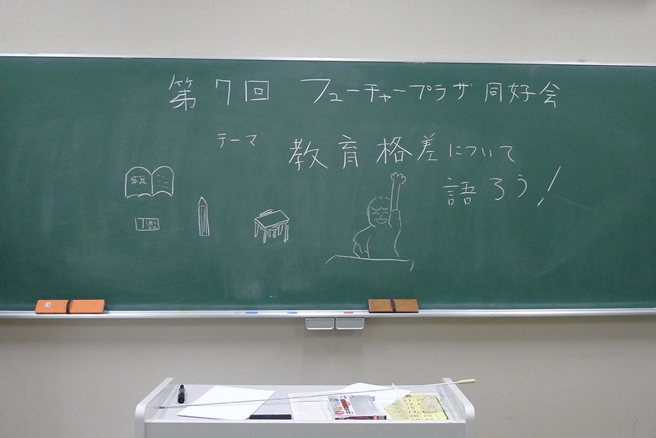 第7回 フューチャープラザ同好会
テーマ 教育格差について
語ろう!